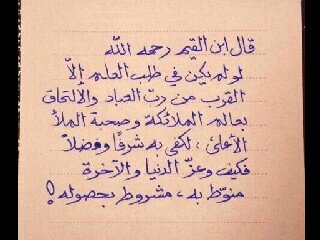 قال ابن القيم رحمه الله
لو لم يكن في طلب العلم إلاّ
القرب من ربّ العباد والإلتحاق
بعالم الملائكة وصحبة الملأ
الأعلى ، لكفى به شرفًا وفضلاً
فكيف وعزّ الدنيا والآخرة
منوّط به ، مشروط بحصوله !